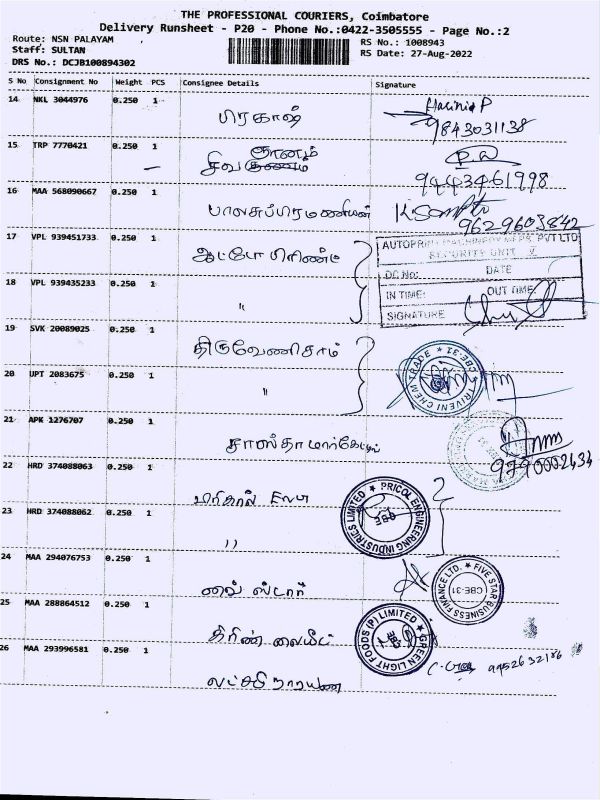 THE PROFESSIONAL COURIERS, Coimbatore
Delivery Runsheet - P20 - Phone No.:0422-3505555 - Page No.:2
Route: NSN PALAYAM
RS No.: 1008943
Staff: SULTAN
RS Date: 27-Aug-2022
DRS No.: DCJB100894302
S No Consignment No Weight PCS Consignee Details Signature
14 NKL 3044976 0.250 1 பிரகாஷ் Harini P
9843031138
15 TRP 7770421 0.250 1 ஞானம்
சிவ
9443461998
16 MAA 568090667 0.250 1 பாலசுப்பிரமணியன்
9629603842
17 VPL 939451733 0.250 1 ஆட்டோ பிரிண்ட்
AUTOPRINT MACHINERY MFRS. PVT LTD
SECURITY UNIT V
DC No: DATE
18 VPL 939435233 0.250 1 "
IN TIME: OUT TIME:
SIGNATURE
19 SVK 20089025 0.250 1 திருவேணிகாம்
20 UPT 2083675 0.250 1 "
TRIVENI CHEM TRADE ★ CBE-31 ★
21 APK 1276707 0.250 1 சாஸ்தா மார்கேட்டிங்
9790002434
22 HRD 374088063 0.250 1 பிரிகால் Eng
23 HRD 374088062 0.250 1 "
PRICOL ENGINEERING INDUSTRIES LIMITED ★
CBE
24 MAA 294076753 0.250 1 பைவ் ஸ்டார்
FIVE STAR BUSINESS FINANCE LTD. ★
CBE-31
25 MAA 288864512 0.250 1 கிரீன் லைட்
GREEN LIGHT FOODS (P) LIMITED ★
26 MAA 293996581 0.250 1 லட்சுமி நாராயண
9952632186